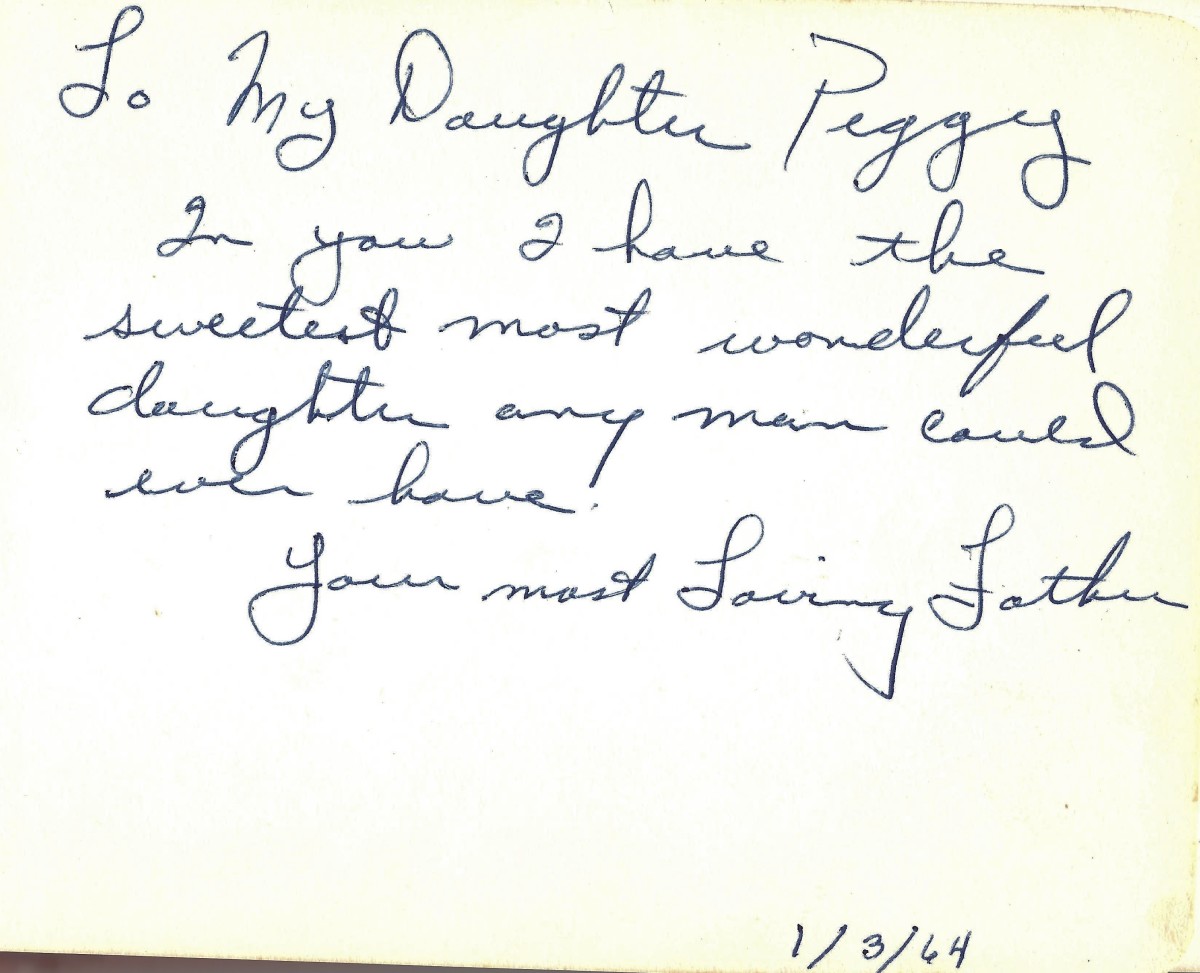 To My Daughter Peggy
In you I have the
sweetest most wonderful
daughter any man could
ever have.
Your most Loving Father
1/3/64